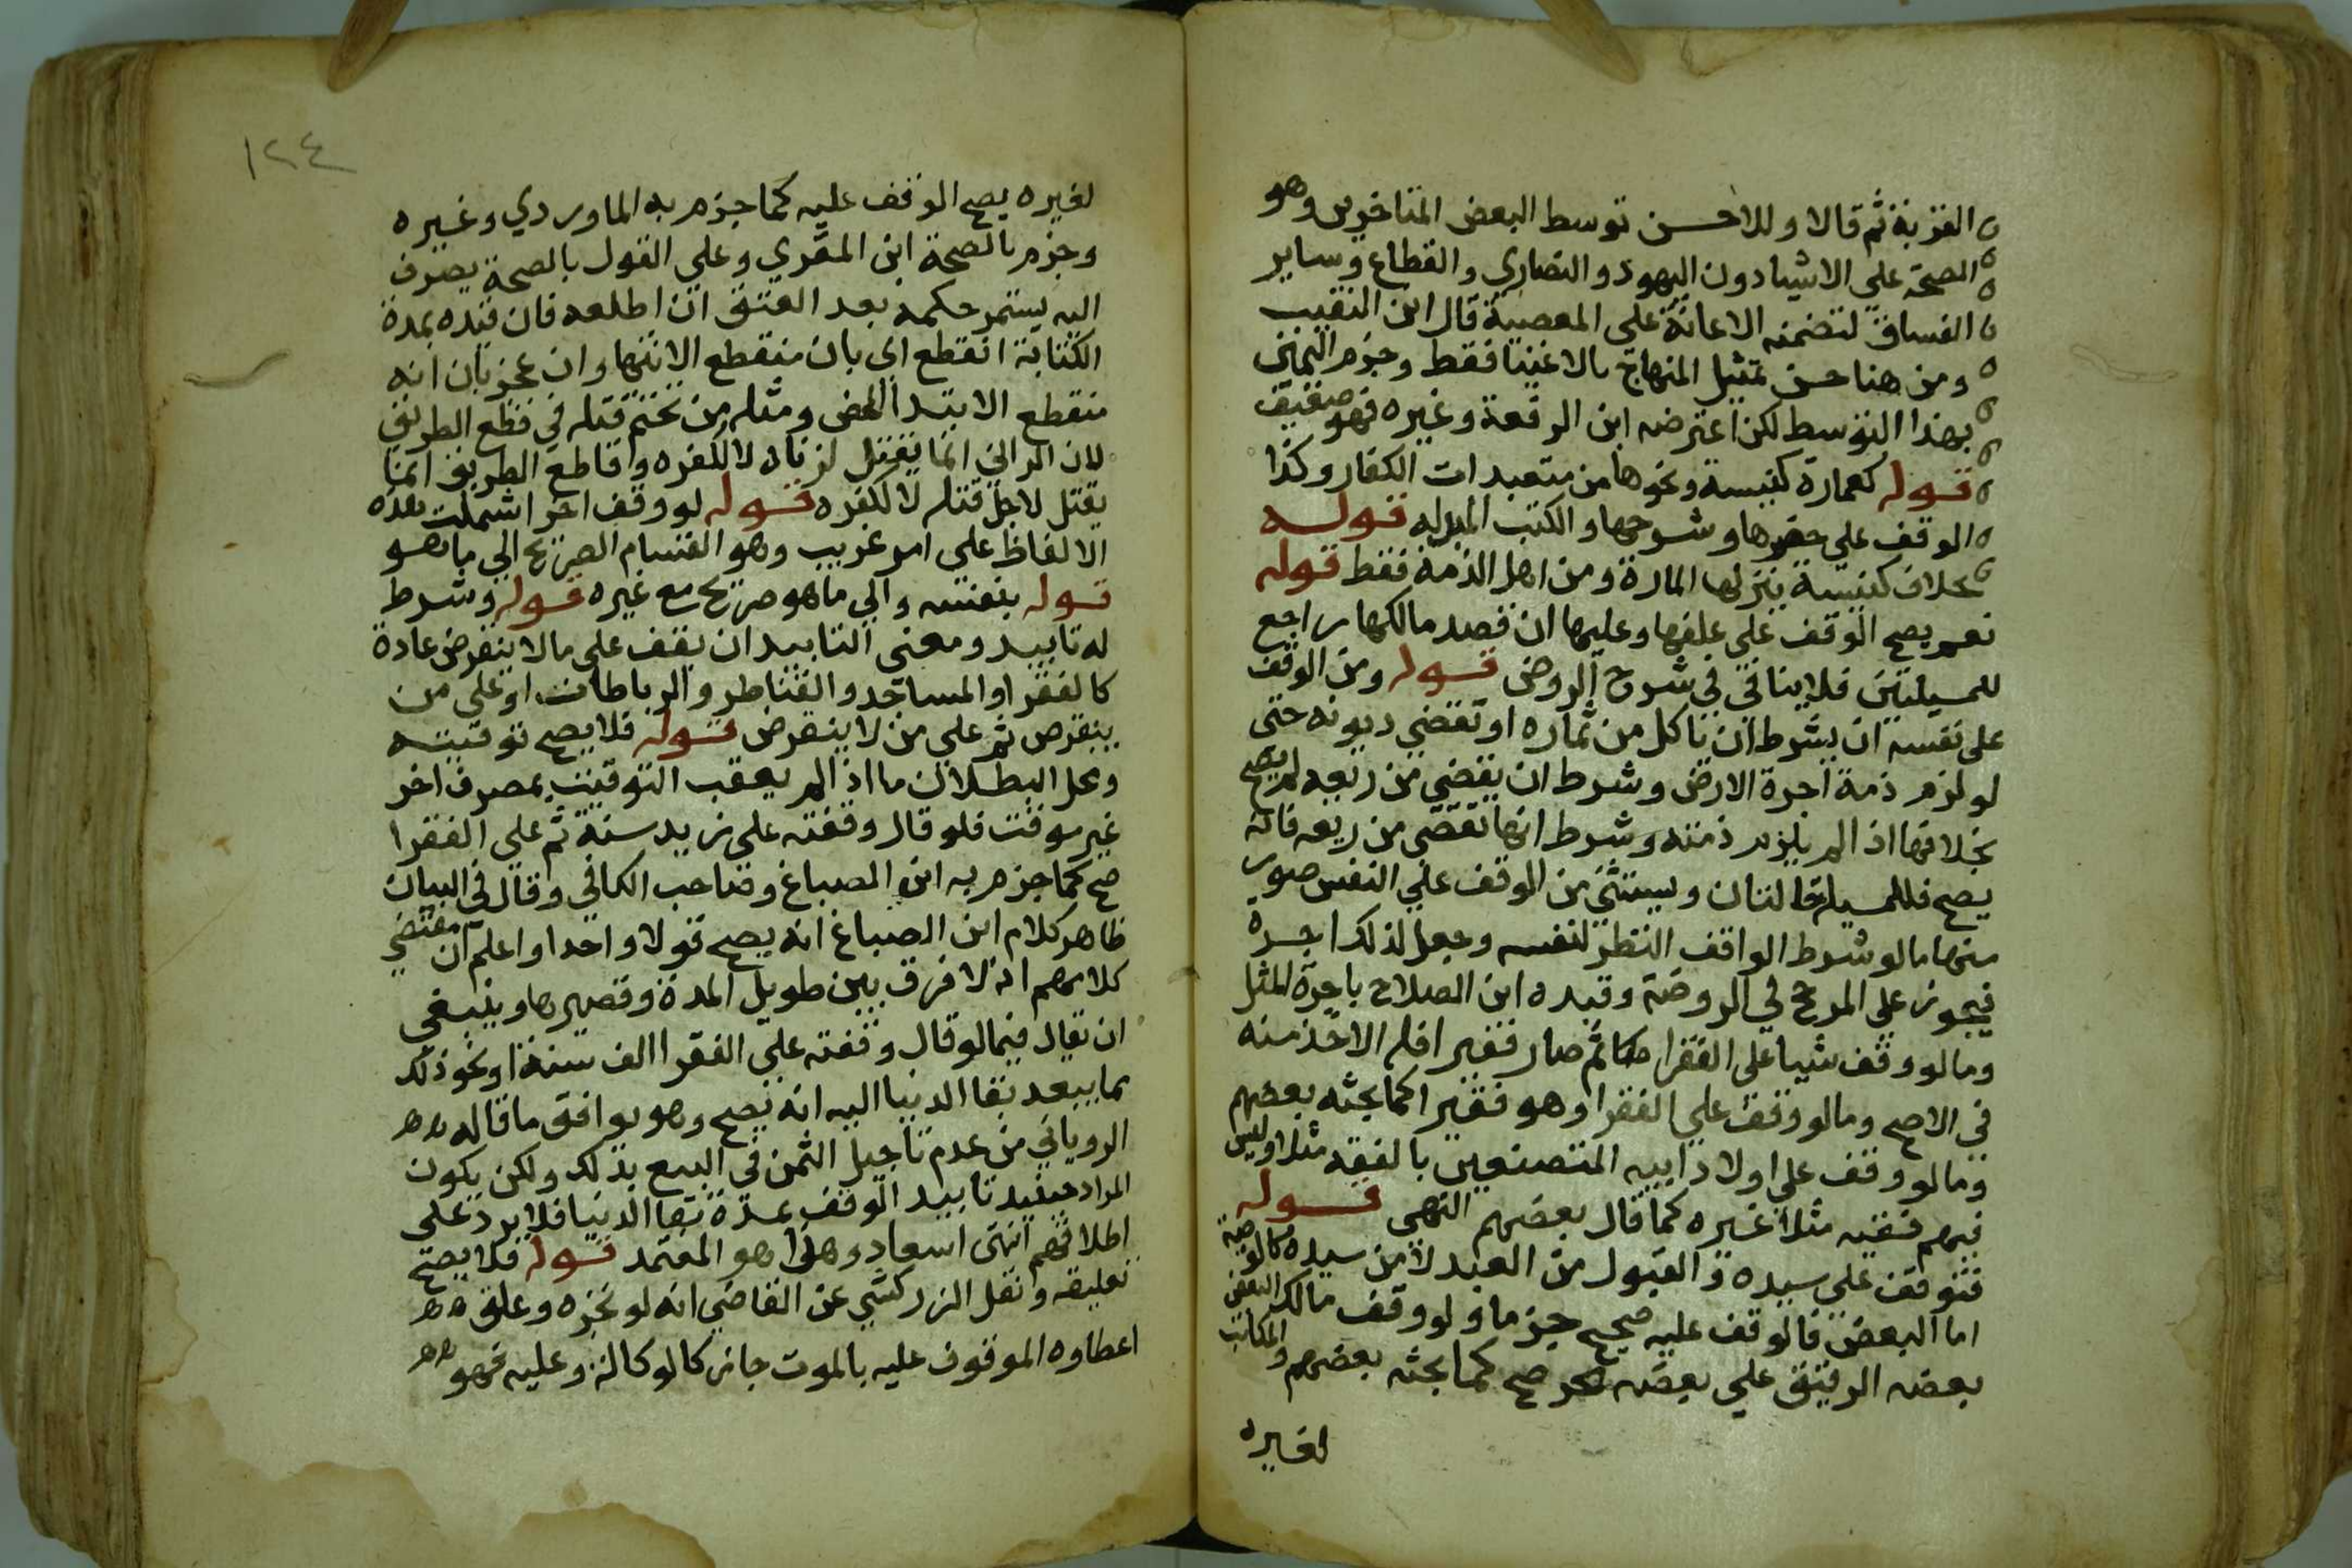 القربة ثم قالا وللاحسن توسط البعض المتاخرين وهو
الصحة على الاغنيا دون اليهود والنصاري والقطاع وساير
الفساق لتضمنه الاعانة على المعصية قال ابن النقيب
ومن هنا حسن تمثيل المنهاج بالاغنيا فقط وجزم اليمني
بهذا التوسط لكن اعترضه ابن الرفعة وغيره فهو ضعيف
قوله كعمارة كنيسة ونحوها من متعبدات الكفار وكذا
الوقف على حصرها وسرجها والكتب المبدله قوله
بخلاف كنيسة ينزلها المارة ومن اهل الذمة فقط قوله
نعم يصح الوقف على علفها وعليها ان قصد مالكها راجع
للمسيلتين فلا ينافي في شرح الروض قوله ومن الوقف
على نفسه ان يشرط ان ياكل من ثماره او تقضي ديونه حتى
لو لزم ذمة اجرة الارض وشرط ان يقضي من ريعه لم يصح
بخلافها اذا لم يلزم ذمته وشرط انها تقضى من ريعه فانه
يصح فللمسيلة حالتان ويستثنى من الوقف على النفس صور
منها ما لو شرط الواقف النظر لنفسه وجعل لذلك اجرة
فيجوز على المرجح في الروضة وقيده ابن الصلاح باجرة المثل
وما لو وقف شيا على الفقرا ثم صار فقيرا فله الاخذ منه
في الاصح وما لو وقف على الفقرا وهو فقير كما بحثه بعضهم
وما لو وقف على اولاد ابيه المتصفين بالفقه مثلا وليس
فيهم فقيه مثلا غيره كما قال بعضهم انتهى قوله
فتوقف على سيده والقبول من العبد لا من سيده كالوصية
اما البعض فالوقف عليه صحيح جزما ولو وقف مالك البعض
بعضه الرقيق على بعضه الحر صح كما بحثه بعضهم والمكاتب
لغيره
١٢٤
لغيره يصح الوقف عليه كما جزم به الماوردي وغيره
وجزم بالصحة ابن المقري وعلى القول بالصحة يصرف
اليه يستمر حكمه بعد العتق ان اطلعه فان قيده بمدة
الكتابة انقطع اي بان منقطع الانتها وان عجز بان انه
منقطع الابتدا المحض ومثله من تحتم قتله في قطع الطريق
لان الزاني انما يقتل لزناه لا لكفره وقاطع الطريق انما
يقتل لاجل قتله لا لكفره قوله لو وقف اخر اشتملت هذه
الالفاظ على امر غريب وهو انقسام الصريح الي ما هو
قوله بنفسه والي ما هو صريح مع غيره قوله وشرط
له تابيد ومعنى التابيد ان يقف على ما لا ينقرض عادة
كالفقرا والمساجد والقناطر والرباطات او على من
ينقرض ثم على من لا ينقرض قوله فلا يصح توقيته
ومحل البطلان ما اذا لم يعقب التوقيت بمصرف اخر
غير موقت فلو قال وقفته على زيد سنة ثم على الفقرا
صح كما جزم به ابن الصباغ وصاحب الكافي وقال في البيان
ظاهر كلام ابن الصباغ انه يصح قولا واحدا واعلم ان مقتضى
كلامهم انه لا فرق بين طويل المدة وقصيرها وينبغي
ان يقال فيما لو قال وقفته على الفقرا الف سنة او نحو ذلك
بما يبعد بقا الدنيا اليه انه يصح وهو يوافق ما قاله
الروياني من عدم تاجيل الثمن في البيع بذلك ولكن يكون
المراد حينيد تابيد الوقف عدة بقا الدنيا فلا يرد على
اطلاقهم انتهى اسعاد وهذا هو المعتمد قوله فلا يصح
تعليقه ونقل الزركشي عن القاضي انه لو نجزه وعلق
اعطاوه الموقوف عليه بالموت جاز كالوكالة وعليه فهو